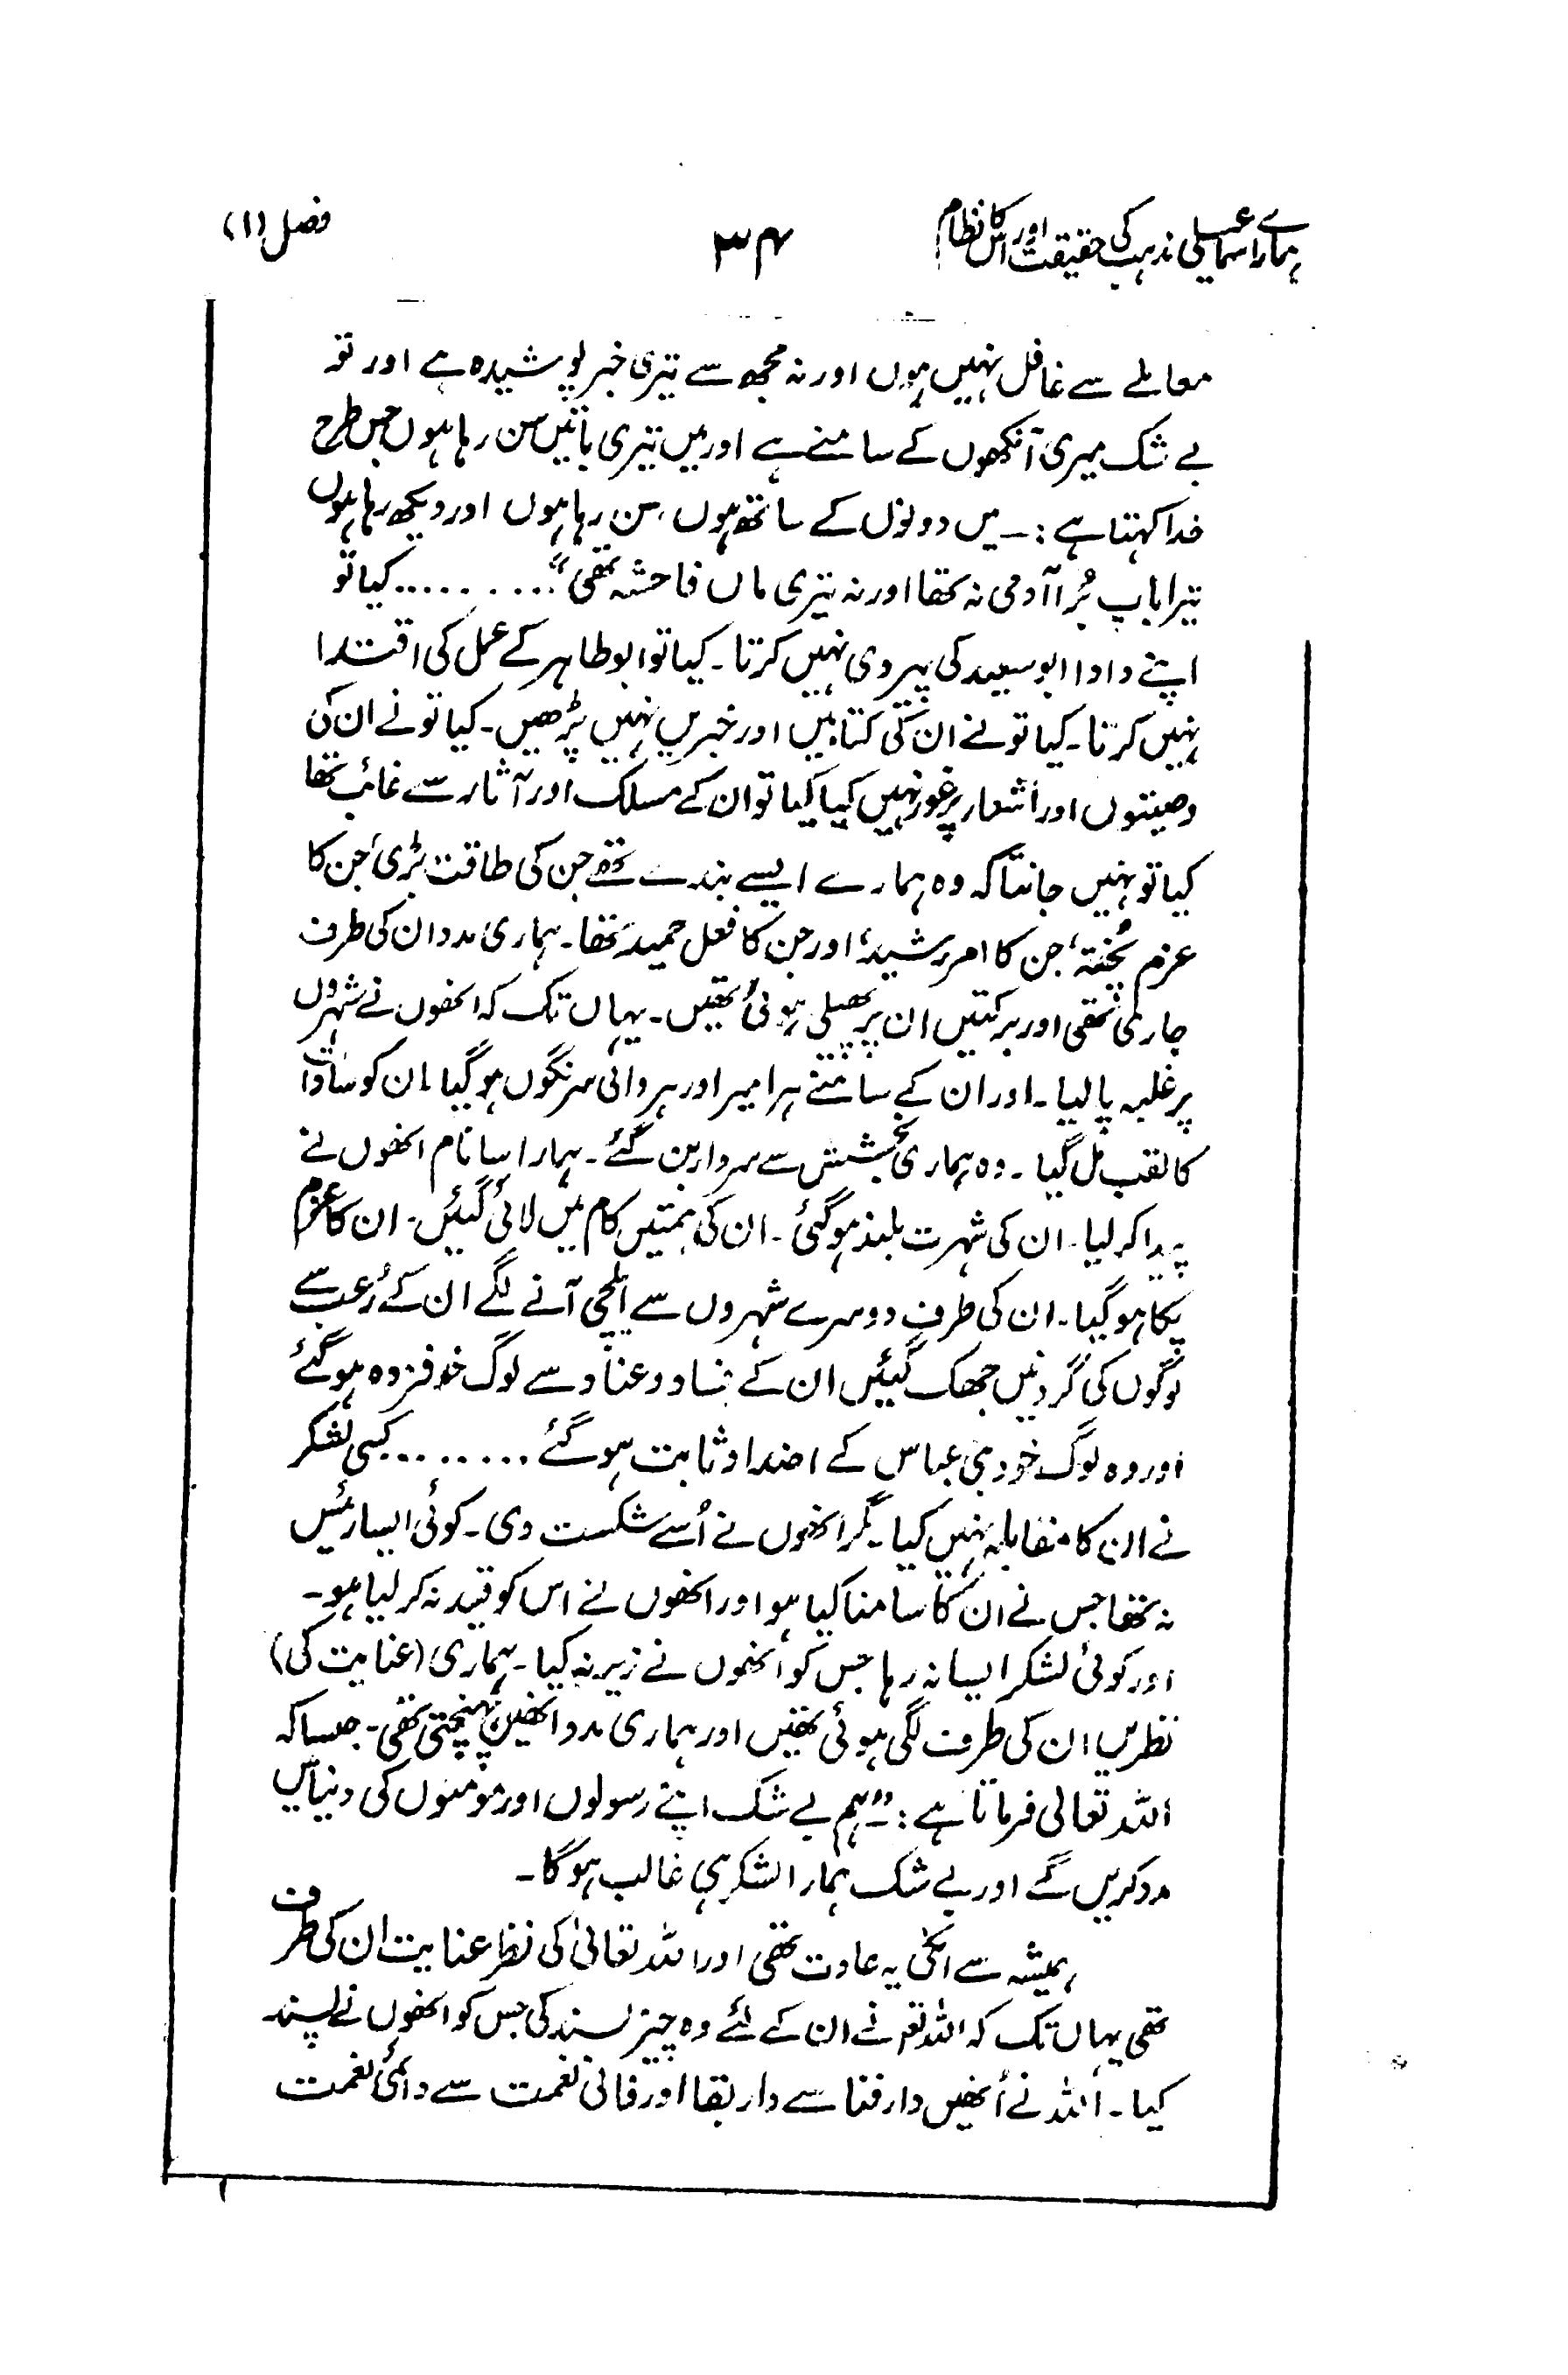 ہمارے اسماعیلی مذہب کی حقیقت اور اس کا نظام
۳۴
فصل (۱)
معاملے سے غافل نہیں ہوں اور نہ مجھ سے تیری خبر پوشیدہ ہے اور تو
بے شک میری آنکھوں کے سامنے ہے اور میں تیری باتیں سن رہا ہوں جس طرح
خدا کہتا ہے :۔ میں دونوں کے ساتھ ہوں، سن رہا ہوں اور دیکھ رہا ہوں
تیرا باپ بُرا آدمی نہ تھا اور نہ تیری ماں فاحشہ تھی“.......... کیا تو
اپنے دادا ابو سعید کی پیروی نہیں کرتا ۔ کیا تو ابو طاہر کے عمل کی اقتدا
نہیں کرتا ۔ کیا تو نے ان کی کتابیں اور خبریں نہیں پڑھیں ۔ کیا تو نے ان کی
وصیتوں اور اشعار پر غور نہیں کیا کیا تو ان کے مسلک اور آثار سے غائب تھا
کیا تو نہیں جانتا کہ وہ ہمارے ایسے بندے تھے جن کی طاقت بڑی، جن کا
عزم پُختہ، جن کا امر رشید، اور جن کا فعل حمید تھا ۔ ہماری مدد ان کی طرف
جاری تھی اور برکتیں ان پر پھیلی ہوئی تھیں ۔ یہاں تک کہ انھوں نے شہروں
پر غلبہ پا لیا ۔ اور ان کے سامنے ہر امیر اور ہر والی سرنگوں ہو گیا ۔ ان کو سادات
کا لقب مل گیا ۔ وہ ہماری بخشش سے سردار بن گئے ۔ ہمارا سا نام انھوں نے
پیدا کر لیا ۔ ان کی شہرت بلند ہو گئی ۔ ان کی ہمتیں کام میں لائی گئیں ۔ ان کا عزم
پکا ہو گیا ۔ ان کی طرف دوسرے شہروں سے ایلچی آنے لگے ان کے رُعب سے
لوگوں کی گردنیں جھک گئیں ان کے فساد و عناد سے لوگ خوفزدہ ہو گئے
اور وہ لوگ خود بنی عباس کے اضداد ثابت ہو گئے ........ کسی لشکر
نے ان کا مقابلہ نہیں کیا ۔ مگر انھوں نے اُسے شکست دی ۔ کوئی ایسا رئیس
نہ تھا جس نے ان کا سامنا کیا ہو اور انھوں نے اس کو قید نہ کر لیا ہو ۔
اور کوئی لشکر ایسا نہ رہا جس کو انھوں نے زیر نہ کیا ۔ ہماری (عنایت کی)
نظریں ان کی طرف لگی ہوئی تھیں اور ہماری مدد انھیں پہنچتی تھی ۔ جیسا کہ
اللہ تعالی فرماتا ہے :۔ ”ہم بے شک اپنے رسولوں اور مومنوں کی دنیا میں
مدد کریں گے اور بے شک ہمارا لشکر ہی غالب ہوگا ۔
ہمیشہ سے انکی یہ عادت تھی اور اللہ تعالیٰ کی نظر عنایت ان کی طرف
تھی یہاں تک کہ اللہ تع نے ان کے لئے وہ چیز پسند کی جس کو انھوں نے پسند
کیا ۔ اللہ نے اُنھیں دار فنا سے دار بقا اور فانی نعمت سے دائمی نعمت